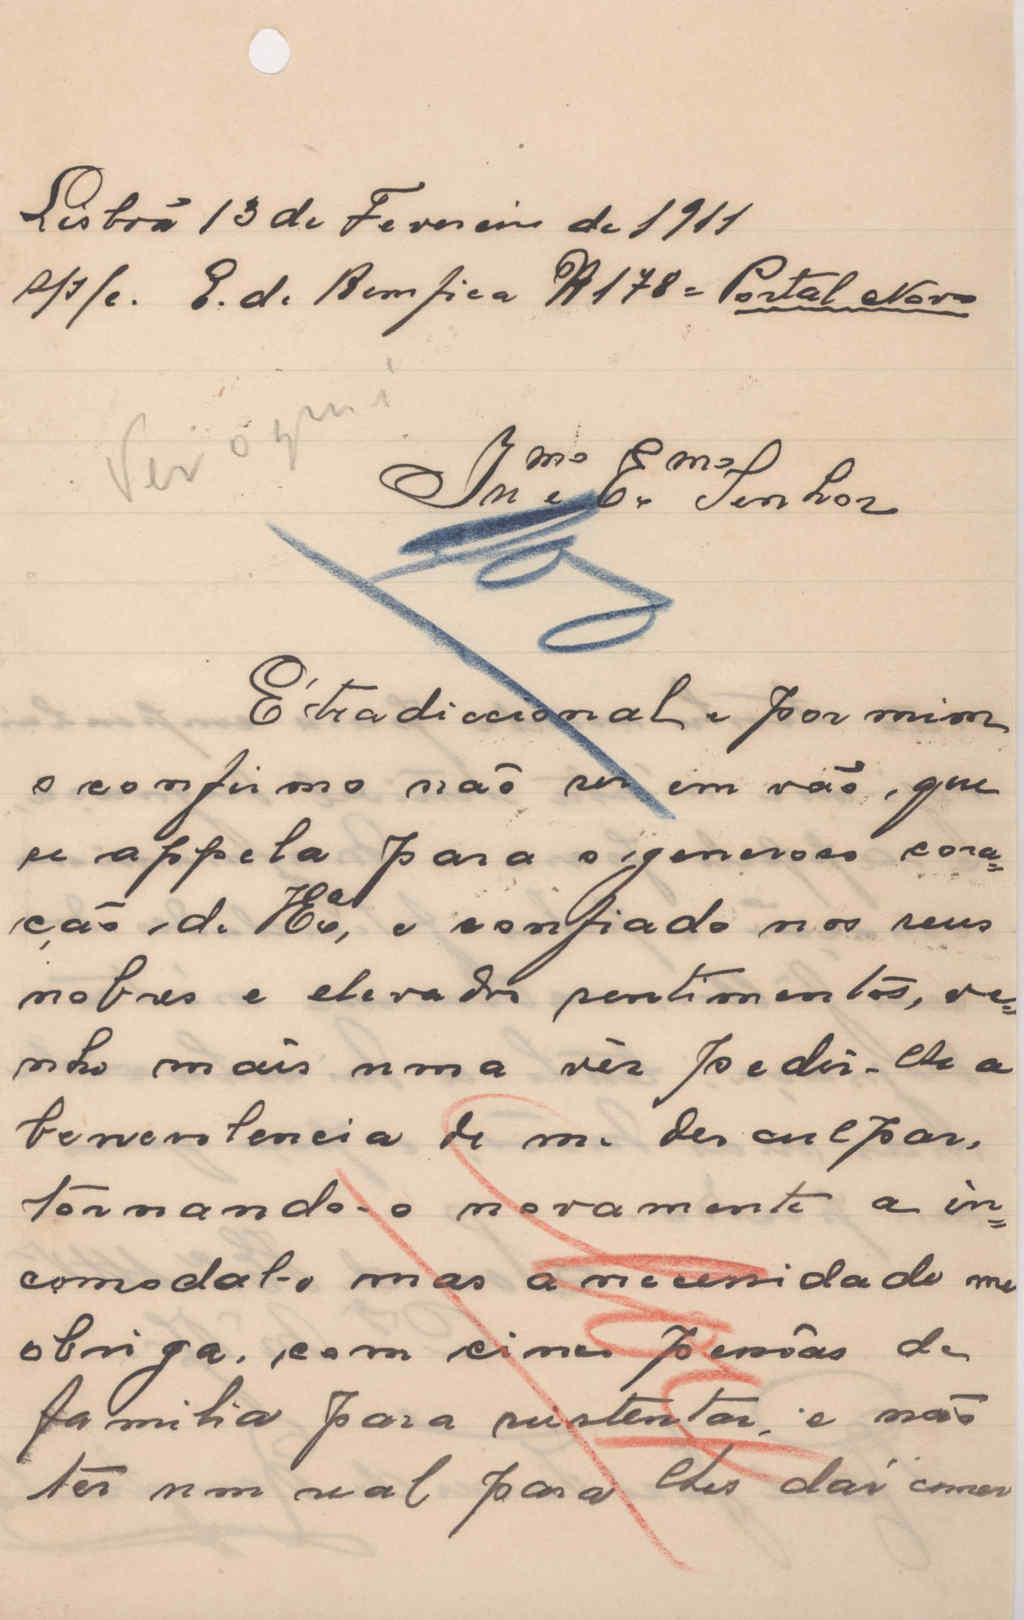 Lisbôa 13 de Fevereiro de 1911
S/s/c. E. de Bemfica Nº 178 = Portal Novo
Ver aqui
Illmo e Exmo Senhor
É tradiccional e por mim
o confirmo não ser em vão, que
se appela para o generoso cora=
ção de V. Exa, e confiado nos seus
nobres e elevados sentimentos, ve=
nho mais uma vêz pedir-lhe a
benevolencia de me desculpar,
tornando-o novamente a in=
comodal-o mas a necessidade me
obriga, com cinco pessôas de
familia para sustentar, e não
ter um real para lhes dar comer